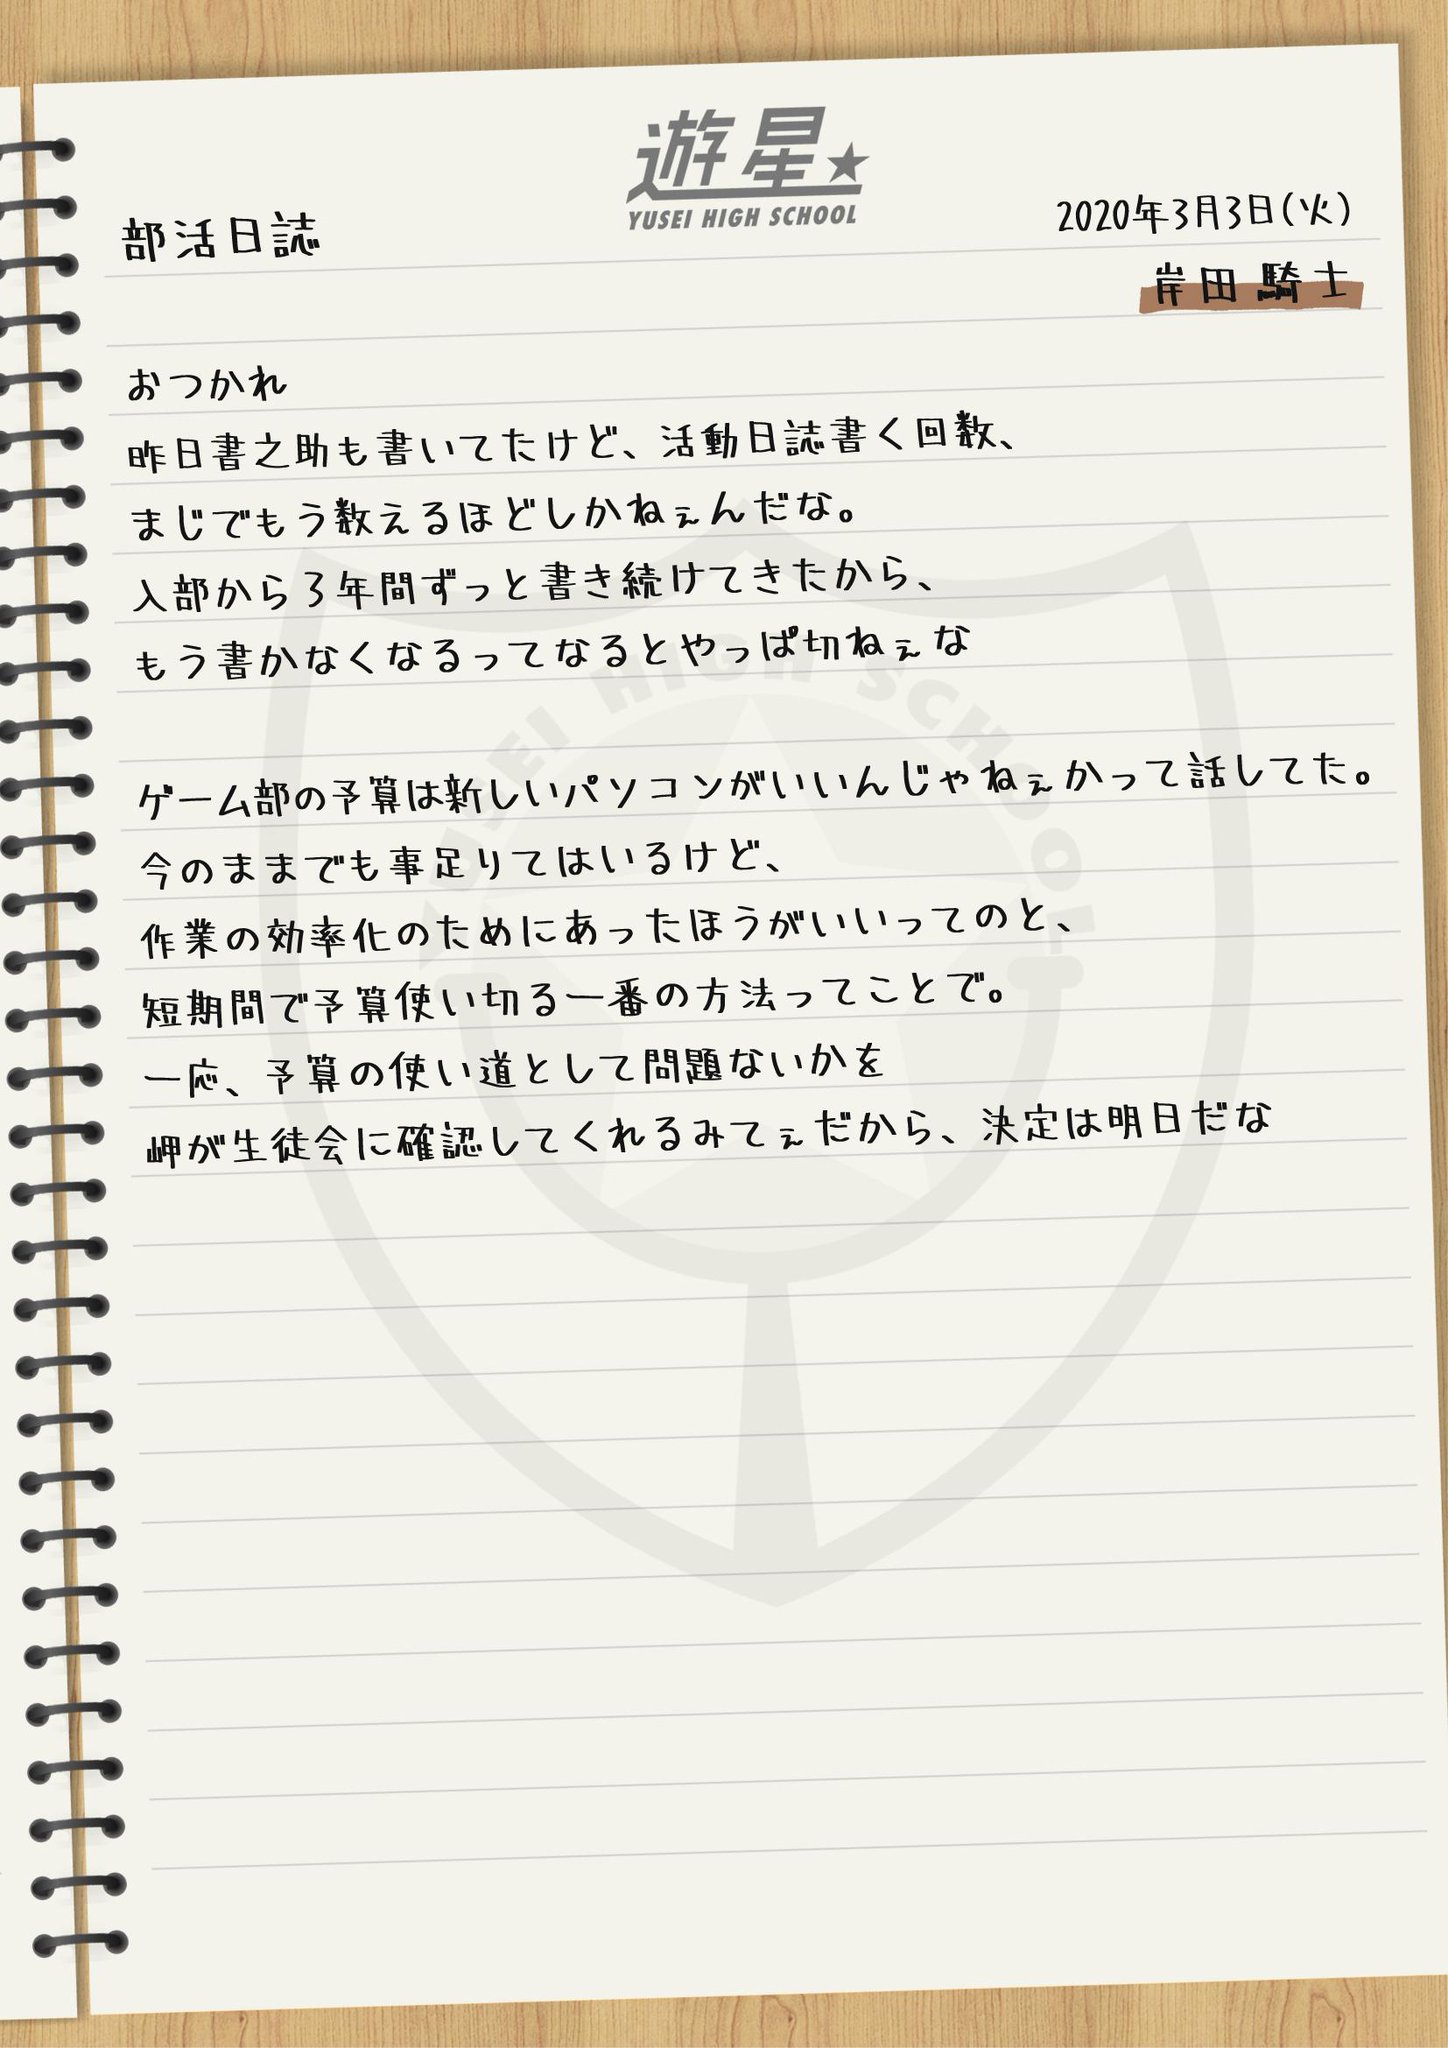 遊星★
YUSEI HIGH SCHOOL
部活日誌
2020年3月3日(火)
岸田騎士
おつかれ
昨日書之助も書いてたけど、活動日誌書く回数、
まじでもう数えるほどしかねぇんだな。
入部から3年間ずっと書き続けてきたから、
もう書かなくなるってなるとやっぱ切ねぇな
ゲーム部の予算は新しいパソコンがいいんじゃねぇかって話してた。
今のままでも事足りてはいるけど、
作業の効率化のためにあったほうがいいってのと、
短期間で予算使い切る一番の方法ってことで。
一応、予算の使い道として問題ないかを
岬が生徒会に確認してくれるみてぇだから、決定は明日だな
YUSEI HIGH SCHOOL